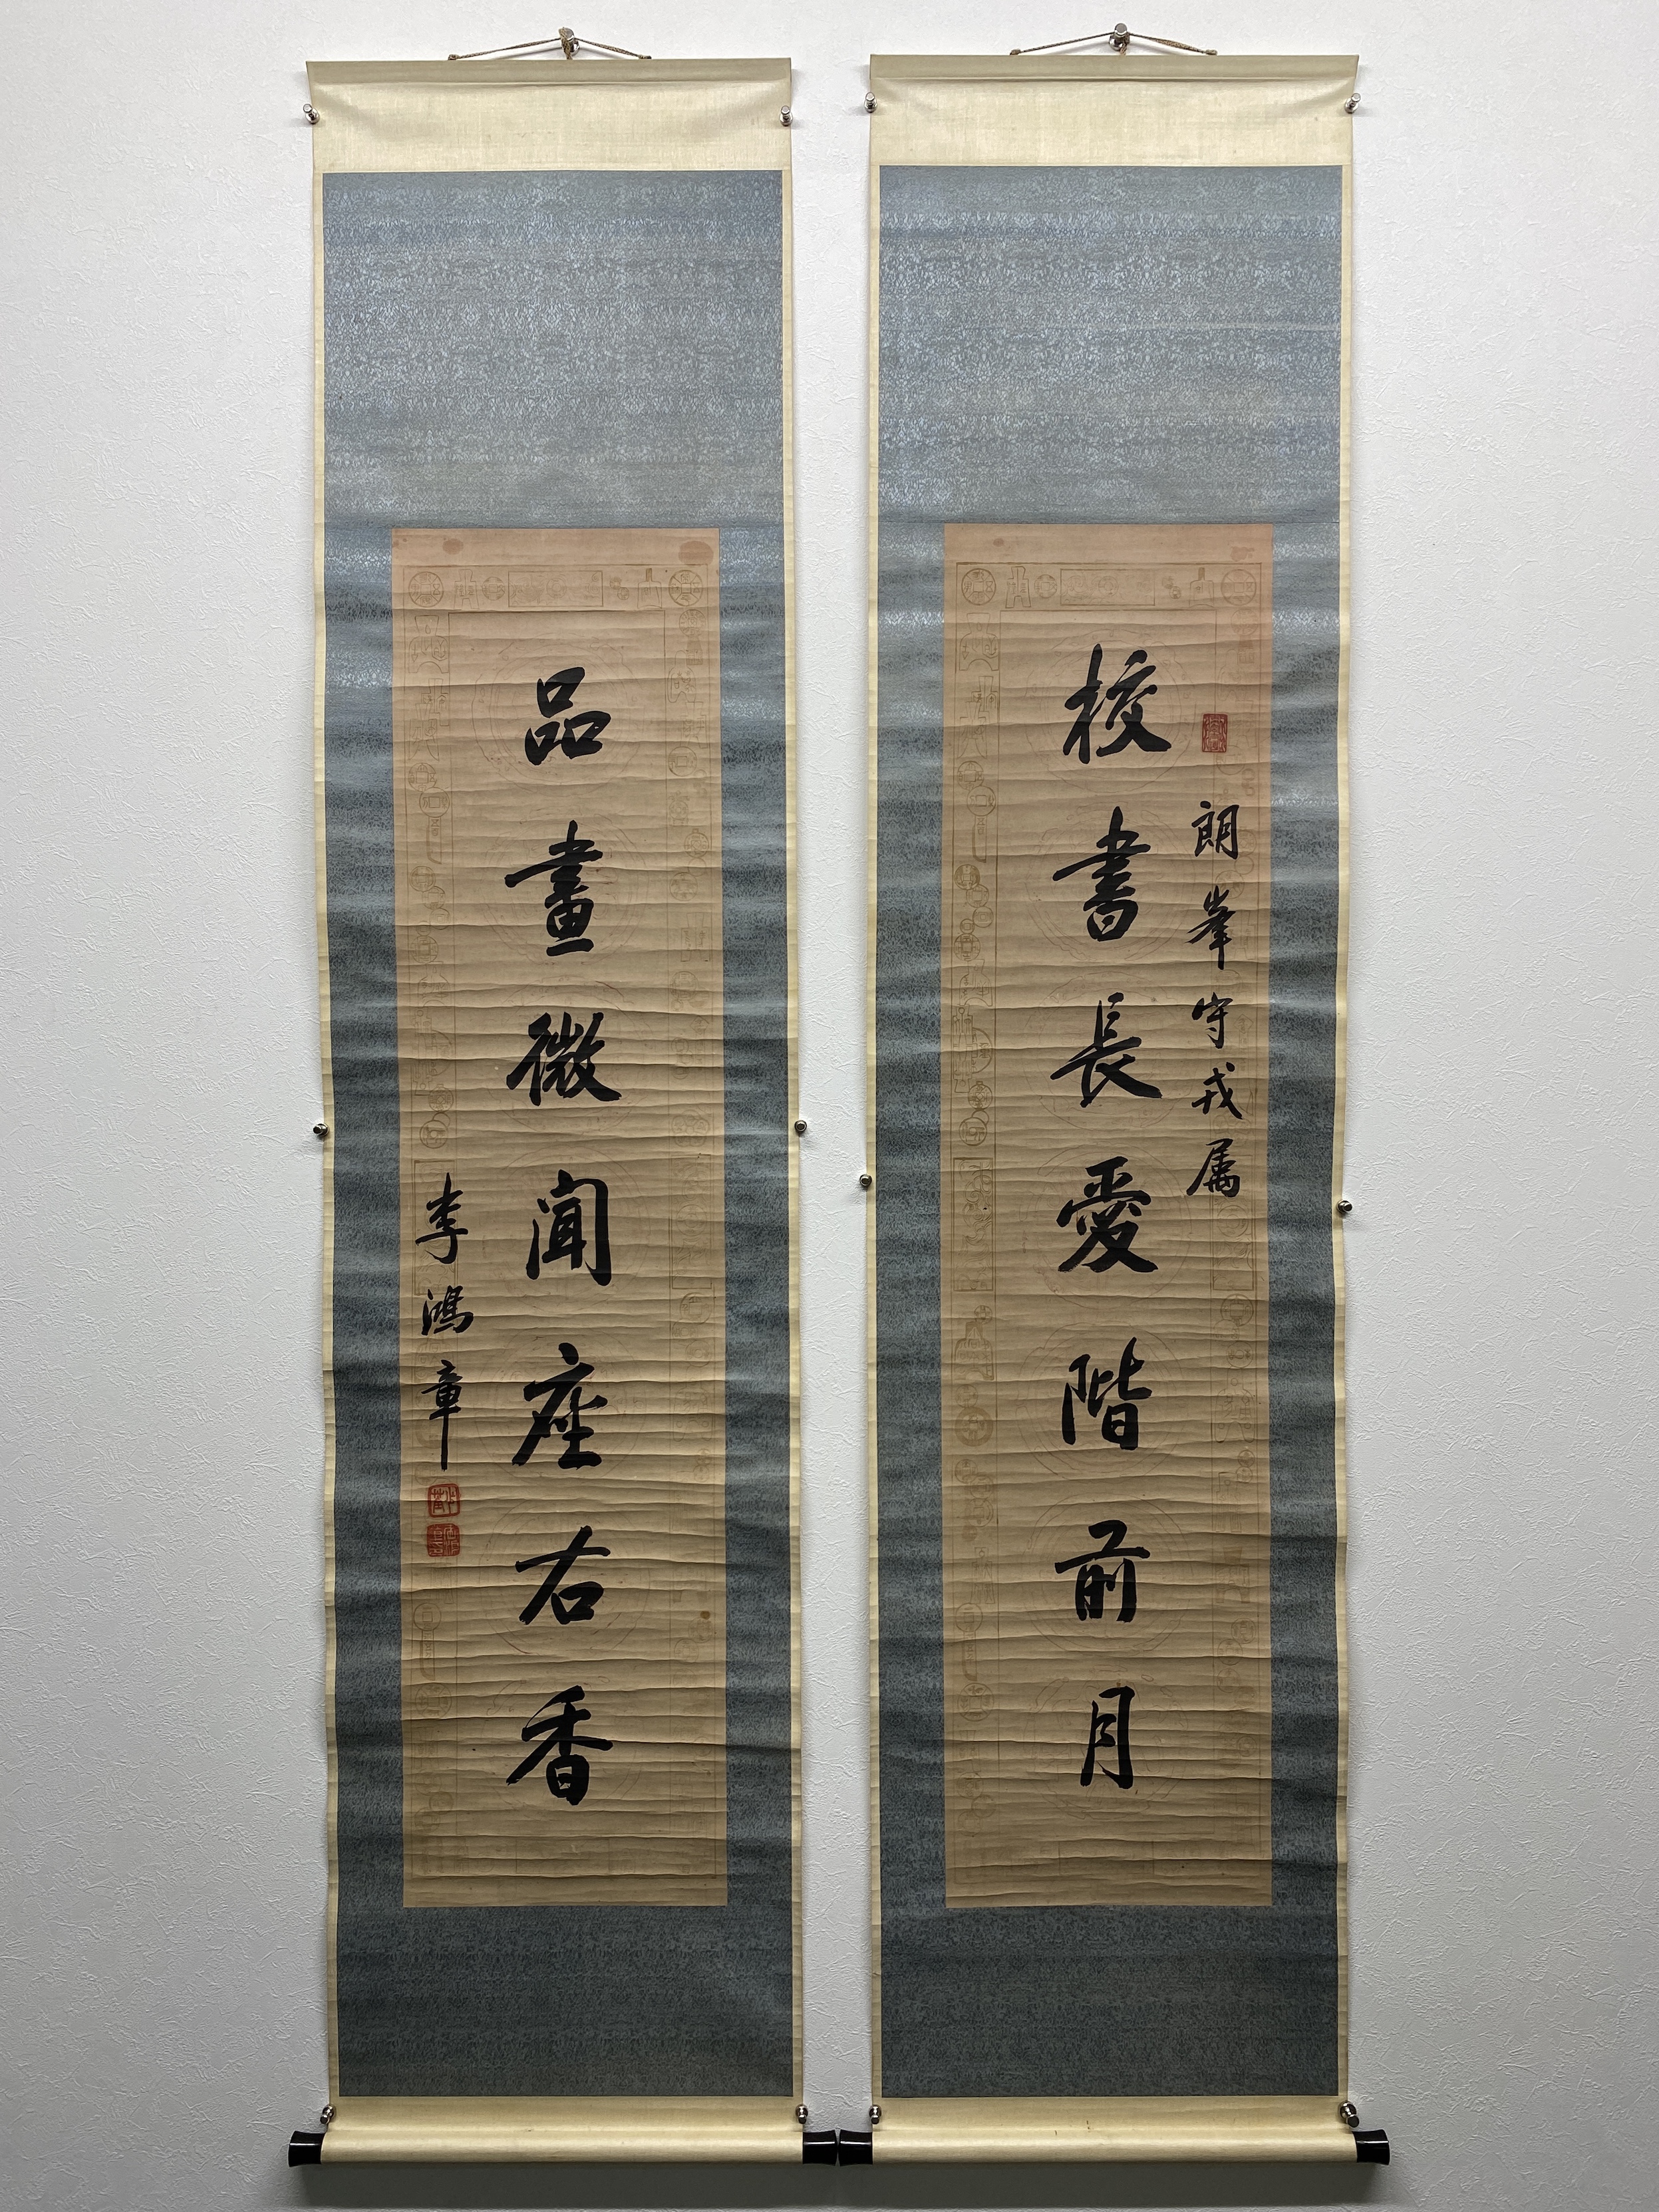 朗峯守戎属
校書長愛階前月
品畫微聞座右香
李鴻章